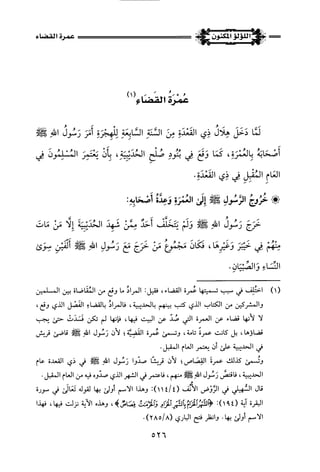 اللؤلؤ المكنون
عمرة القضاء
عُمْرَةُ القَضَاءِ (١)
لَمَّا دَخَلَ هِلَالُ ذِي القَعْدَةِ مِنَ السَّنَةِ السَّابِعَةِ لِلْهِجْرَةِ أَمَرَ رَسُولُ اللهِ ﷺ
أَصْحَابَهُ بِالعُمْرَةِ، كَمَا وَقَعَ فِي بُنُودِ صُلْحِ الحُدَيْبِيَةِ، بِأَنْ يَعْتَمِرَ المُسْلِمُونَ فِي
العَامِ المُقْبِلِ فِي ذِي القَعْدَةِ.
خُرُوجُ الرَّسُولِ ﷺ إِلَى العُمْرَةِ وَعِدَّةُ أَصْحَابِهِ:
خَرَجَ رَسُولُ اللهِ ﷺ وَلَمْ يَتَخَلَّفْ أَحَدٌ مِمَّنْ شَهِدَ الحُدَيْبِيَةَ إِلَّا مَنْ مَاتَ
مِنْهُمْ فِي خَيْبَرَ وَغَيْرِهَا، فَكَانَ مَجْمُوعُ مَنْ خَرَجَ مَعَ رَسُولِ اللهِ ﷺ أَلْفَيْنِ سِوَى
النِّسَاءِ وَالصِّبْيَانِ.
(١) اختُلف في سبب تسميتها عمرة القضاء، فقيل: المرادُ ما وقع من المُقَاضَاة بين المسلمين
والمشركين من الكتاب الذي كتب بينهم بالحديبية، فالمرادُ بالقضاءِ الفَصْلُ الذي وقع،
لا لأنها قضاء عن العمرة التي صُدَّ عن البيت فيها، فإنها لم تكن فَسَدَتْ حتى يجب
قضاؤها، بل كانت عمرةً تامة، وتسمى عُمرة القَضِيَّة؛ لأن رسول الله ﷺ قاضَى قريش
في الحديبية على أن يعتمر العام المقبل.
وتُسمى كذلك عمرةَ القِصَاص؛ لأن قريشًا صدُّوا رسول الله ﷺ في ذي القعدة عام
الحديبية، فاقتصَّ رسولُ الله ﷺ منهم، فاعتمر في الشهر الذي صدّوه فيه من العام المقبل.
قال السُّهيلي في الرَّوْض الأُنُف (٤/١١٤): وهذا الاسم أولى بها لقوله تَعَالَى في سورة
البقرة آية (١٩٤): ﴿الشَّهْرُ الْحَرَامُ بِالشَّهْرِ الْحَرَامِ وَالْحُرُمَاتُ قِصَاصٌ﴾، وهذه الآية نزلت فيها، فهذا
الاسم أولى بها. وانظر فتح الباري (٨/٢٨٥).
٥٢٦